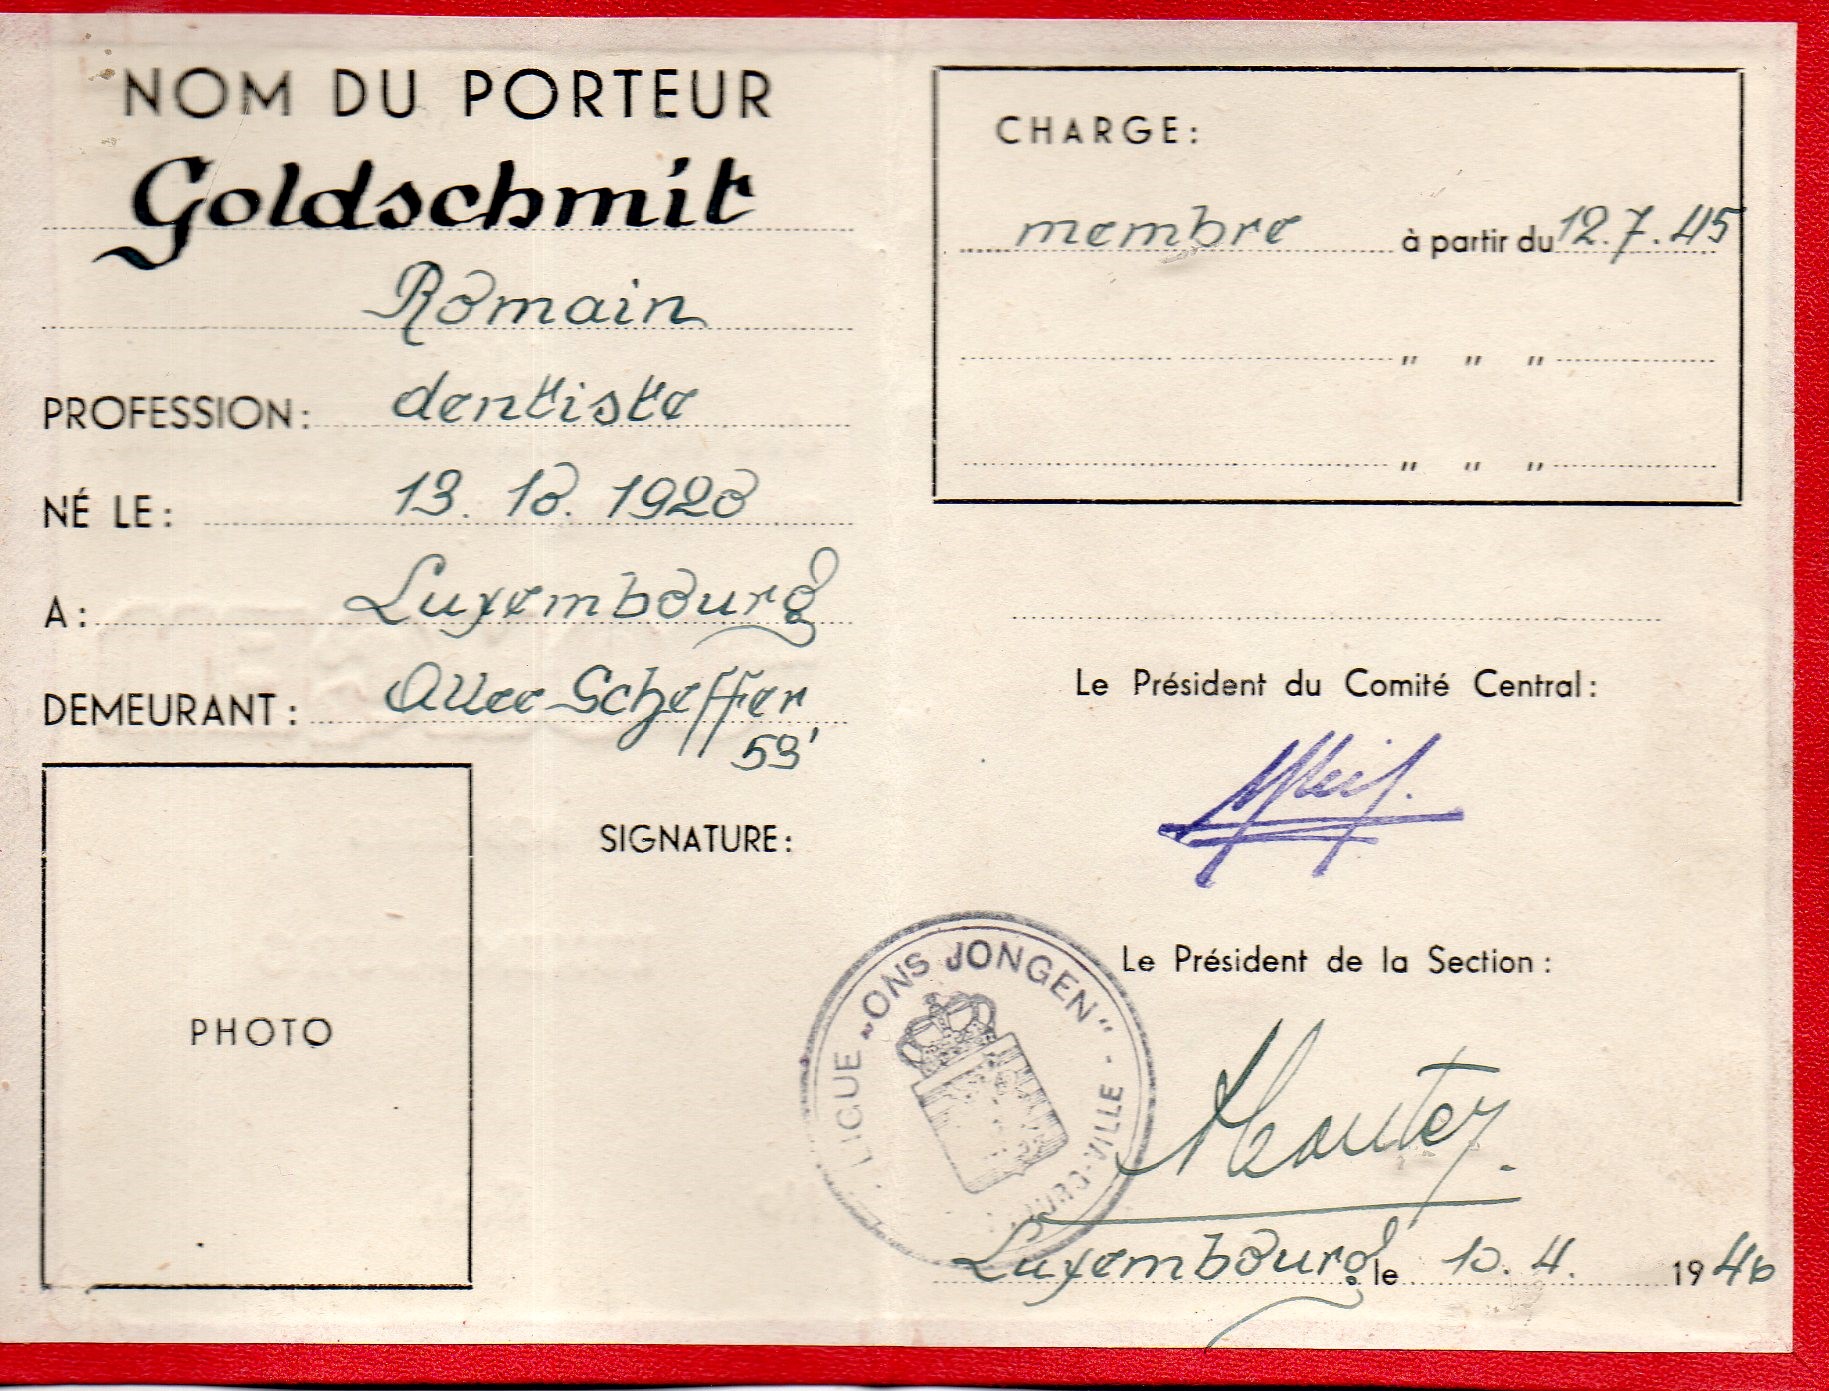 NOM DU PORTEUR
Goldschmit
Romain
PROFESSION: dentiste
NÉ LE: 13. 10. 1920
A: Luxembourg
DEMEURANT: Allee Scheffer
59'
PHOTO
SIGNATURE:
CHARGE:
membre à partir du 12.7.45
" " "
" " "
Le Président du Comité Central:
Le Président de la Section:
LIGUE „ONS JONGEN“ - -VILLE
Luxembourg, le 10. 4. 1946